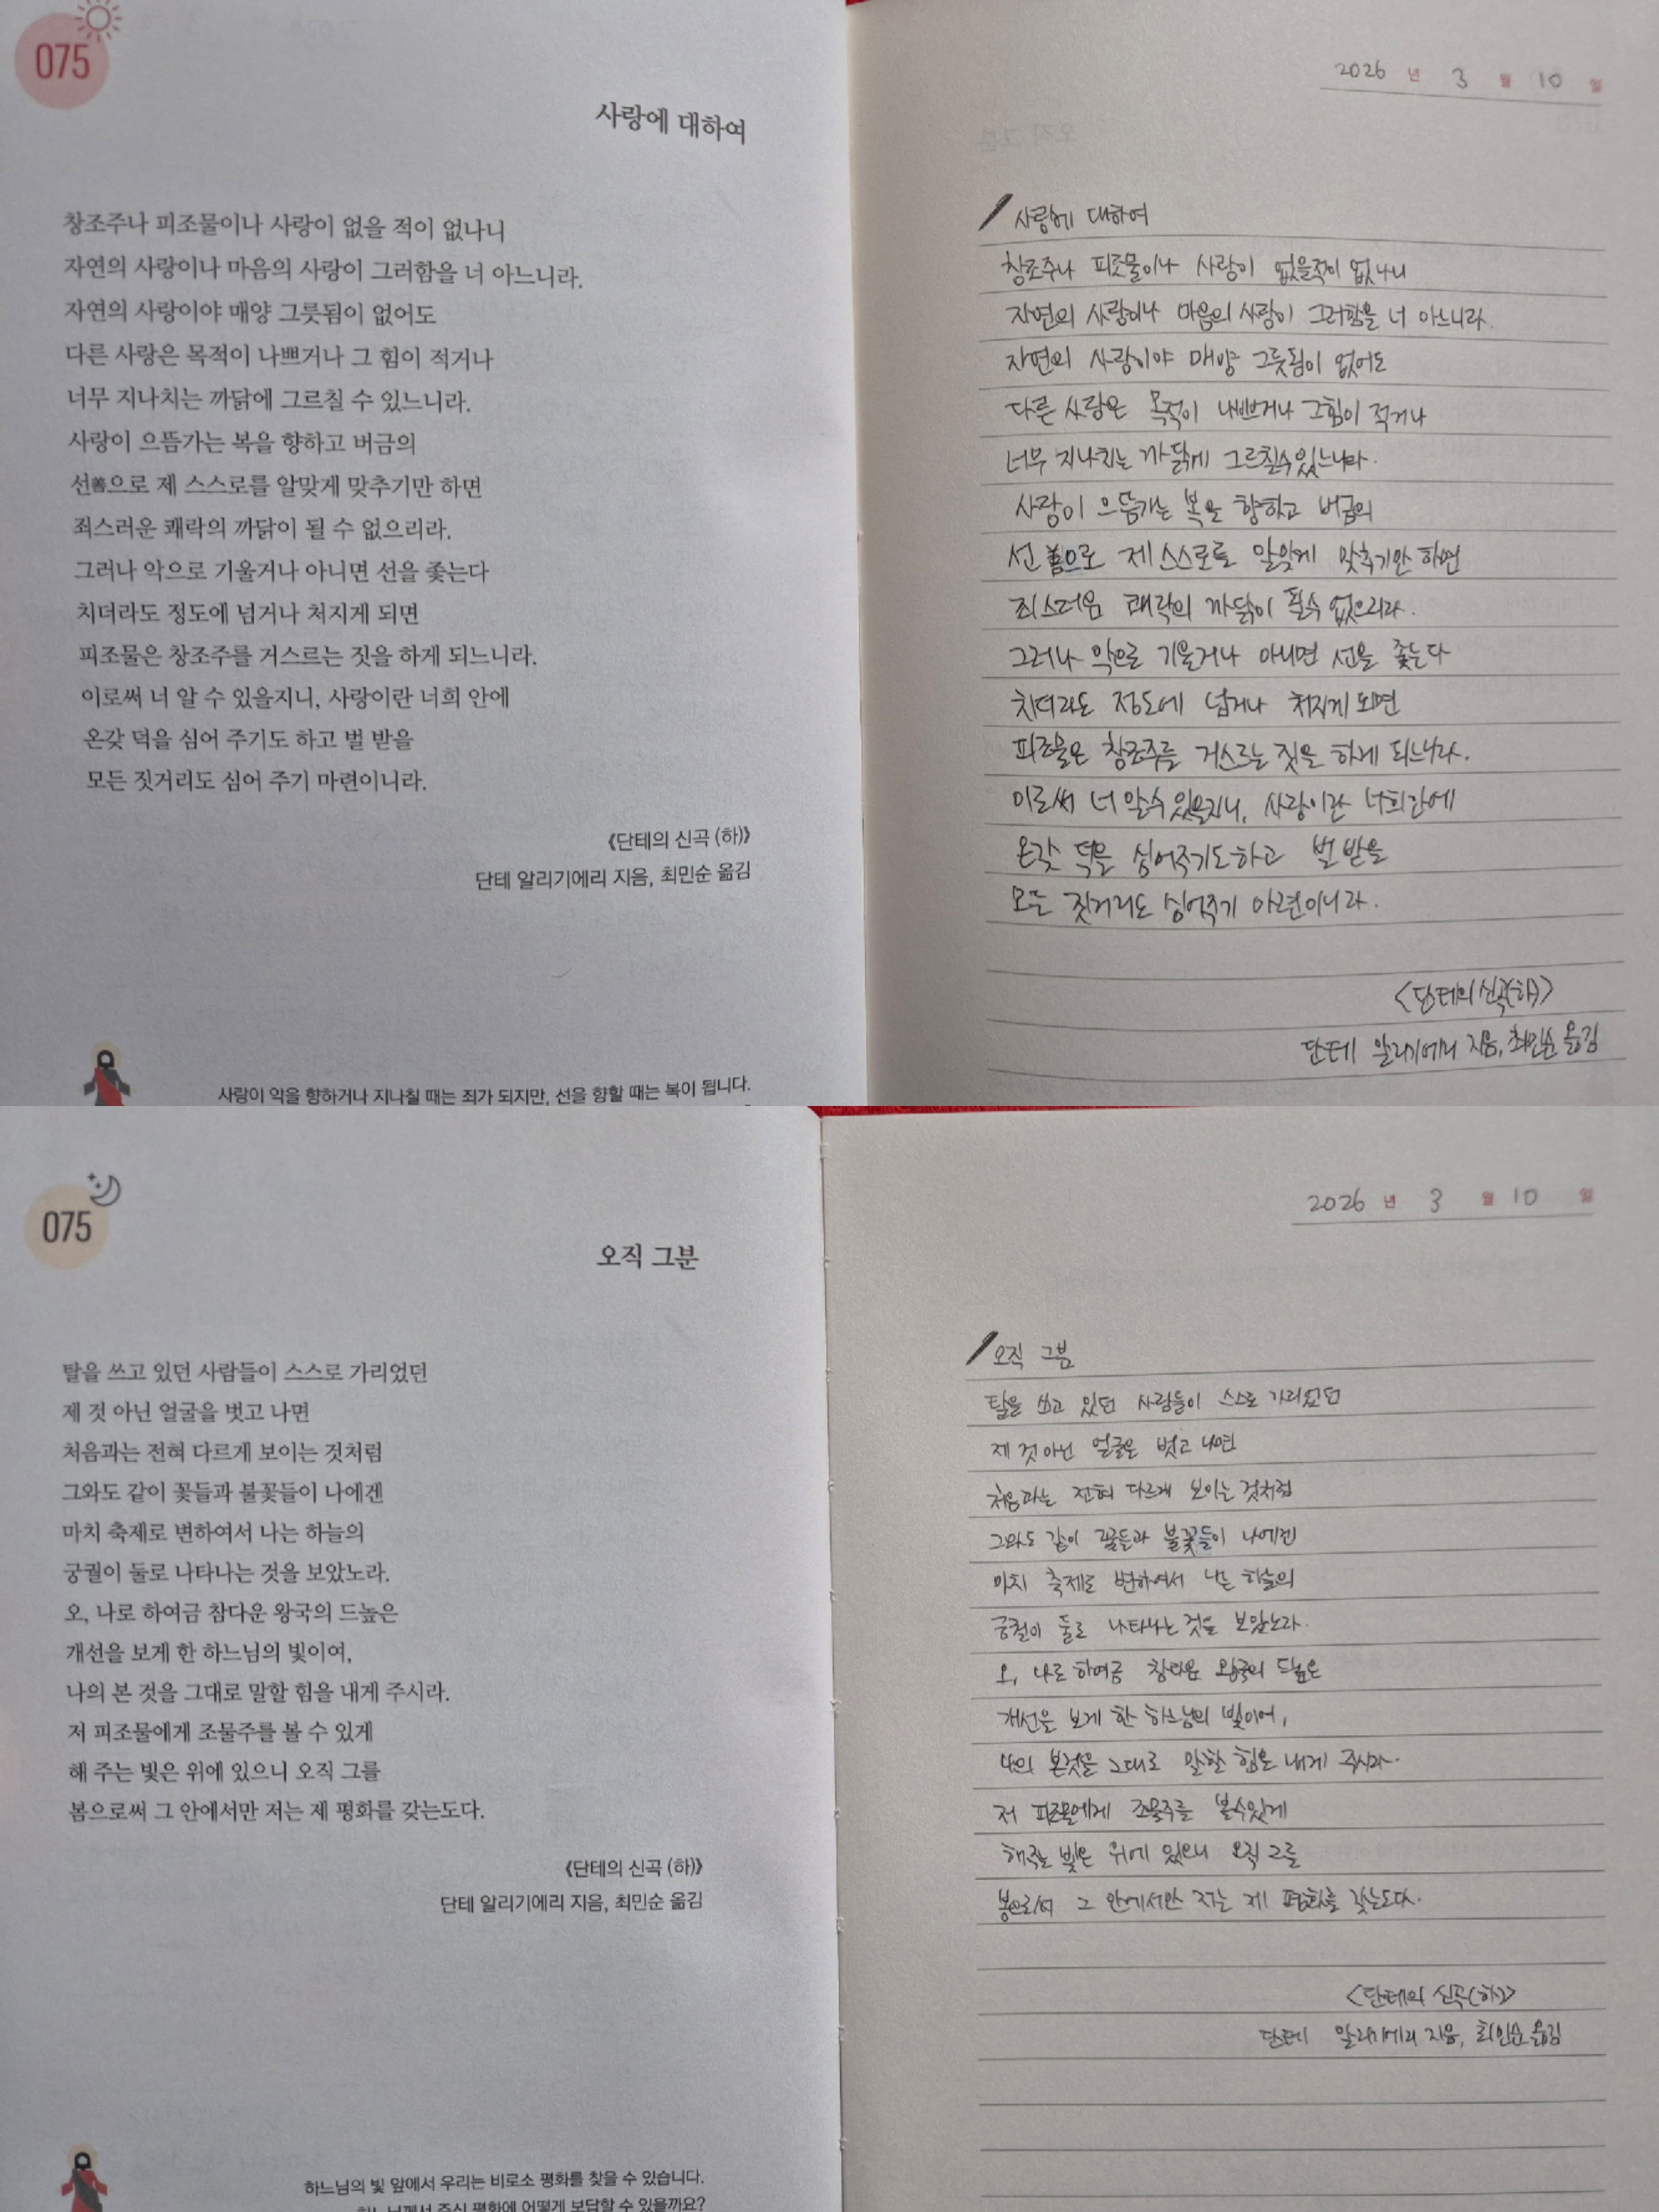 075
사랑에 대하여
창조주나 피조물이나 사랑이 없을 적이 없나니
자연의 사랑이나 마음의 사랑이 그러함을 너 아느니라.
자연의 사랑이야 매양 그릇됨이 없어도
다른 사랑은 목적이 나쁘거나 그 힘이 적거나
너무 지나치는 까닭에 그르칠 수 있느니라.
사랑이 으뜸가는 복을 향하고 버금의
선善으로 제 스스로를 알맞게 맞추기만 하면
죄스러운 쾌락의 까닭이 될 수 없으리라.
그러나 악으로 기울거나 아니면 선을 좇는다
치더라도 정도에 넘거나 처지게 되면
피조물은 창조주를 거스르는 짓을 하게 되느니라.
이로써 너 알 수 있을지니, 사랑이란 너희 안에
온갖 덕을 심어 주기도 하고 벌 받을
모든 짓거리도 심어 주기 마련이니라.
《단테의 신곡 (하)》
단테 알리기에리 지음, 최민순 옮김
사랑이 악을 향하거나 지나칠 때는 죄가 되지만, 선을 향할 때는 복이 됩니다.
2026 년 3 월 10 일
사랑에 대하여
창조주나 피조물이나 사랑이 없을적이 없나니
자연의 사랑이나 마음의 사랑이 그러함을 너 아느니라.
자연의 사랑이야 매양 그릇됨이 없어도
다른 사랑은 목적이 나쁘거나 그힘이 적거나
너무 지나치는 까닭에 그르칠수있느니라.
사랑이 으뜸가는 복을 향하고 버금의
선善으로 제 스스로를 알맞게 맞추기만 하면
죄스러운 쾌락의 까닭이 될수 없으리라.
그러나 악으로 기울거나 아니면 선을 좇는다
치더라도 정도에 넘거나 처지게 되면
피조물은 창조주를 거스르는 짓을 하게 되느니라.
이로써 너 알수 있을지니, 사랑이란 너희안에
온갖 덕을 심어주기도하고 벌 받을
모든 짓거리도 심어주기 마련이니라.
<단테의 신곡(하)>
단테 알리기에리 지음, 최민순 옮김
075
오직 그분
탈을 쓰고 있던 사람들이 스스로 가리었던
제 것 아닌 얼굴을 벗고 나면
처음과는 전혀 다르게 보이는 것처럼
그와도 같이 꽃들과 불꽃들이 나에겐
마치 축제로 변하여서 나는 하늘의
궁궐이 둘로 나타나는 것을 보았노라.
오, 나로 하여금 참다운 왕국의 드높은
개선을 보게 한 하느님의 빛이여,
나의 본 것을 그대로 말할 힘을 내게 주시라.
저 피조물에게 조물주를 볼 수 있게
해 주는 빛은 위에 있으니 오직 그를
봄으로써 그 안에서만 저는 제 평화를 갖는도다.
《단테의 신곡 (하)》
단테 알리기에리 지음, 최민순 옮김
하느님의 빛 앞에서 우리는 비로소 평화를 찾을 수 있습니다.
하느님께서 주신 평화에 어떻게 보답할 수 있을까요?
2026 년 3 월 10 일
오직 그분
탈을 쓰고 있던 사람들이 스스로 가리었던
제 것 아닌 얼굴을 벗고 나면
처음과는 전혀 다르게 보이는 것처럼
그와도 같이 꽃들과 불꽃들이 나에겐
마치 축제로 변하여서 나는 하늘의
궁궐이 둘로 나타나는 것을 보았노라.
오, 나로 하여금 참다운 왕국의 드높은
개선을 보게 한 하느님의 빛이여,
나의 본것을 그대로 말할 힘을 내게 주시라.
저 피조물에게 조물주를 볼수있게
해주는 빛은 위에 있으니 오직 그를
봄으로써 그 안에서만 저는 제 평화를 갖는도다.
<단테의 신곡(하)>
단테 알리기에리 지음, 최민순 옮김